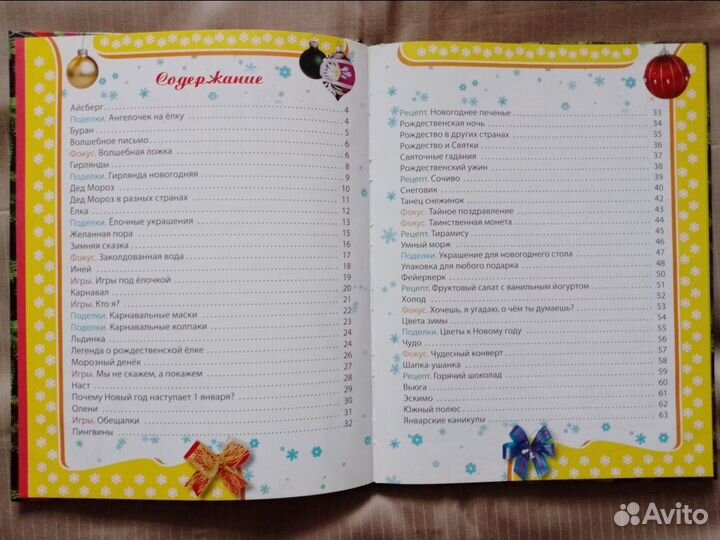 Содержание
Айсберг 4
Поделки. Ангелочек на ёлку 4
Буран 5
Волшебное письмо 6
Фокус. Волшебная ложка 6
Гирлянды 8
Поделки. Гирлянда новогодняя 9
Дед Мороз 10
Дед Мороз в разных странах 11
Ёлка 12
Поделки. Ёлочные украшения 13
Желанная пора 15
Зимняя сказка 16
Фокус. Заколдованная вода 17
Иней 18
Игры. Игры под ёлочкой 19
Карнавал 20
Игры. Кто я? 21
Поделки. Карнавальные маски 22
Поделки. Карнавальные колпаки 23
Льдинка 24
Легенда о рождественской ёлке 24
Морозный денёк 26
Игры. Мы не скажем, а покажем 27
Наст 28
Почему Новый год наступает 1 января? 29
Олени 30
Игры. Обещалки 31
Пингвины 32
Рецепт. Новогоднее печенье 33
Рождественская ночь 34
Рождество в других странах 35
Рождество и Святки 36
Святочные гадания 37
Рождественский ужин 38
Рецепт. Сочиво 39
Снеговик 40
Танец снежинок 42
Фокус. Тайное поздравление 43
Фокус. Таинственная монета 44
Рецепт. Тирамису 45
Умный морж 46
Поделки. Украшение для новогоднего стола 47
Упаковка для любого подарка 48
Фейерверк 50
Рецепт. Фруктовый салат с ванильным йогуртом 51
Холод 52
Фокус. Хочешь, я угадаю, о чём ты думаешь? 53
Цвета зимы 54
Поделки. Цветы к Новому году 55
Чудо 56
Фокус. Чудесный конверт 57
Шапка-ушанка 58
Рецепт. Горячий шоколад 59
Вьюга 60
Эскимо 61
Южный полюс 62
Январские каникулы 63
Avito